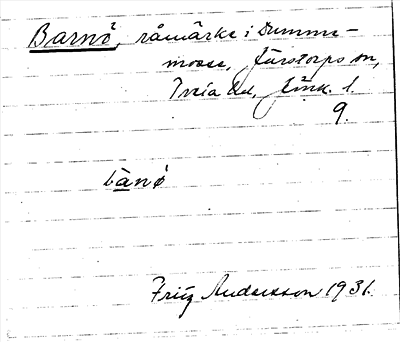 Barnö, råmärke i Dumme-
mosse, Järstorps sn,
Tveta hd, Jönk. l.
9.
bànö
Fritz Andersson 1931.